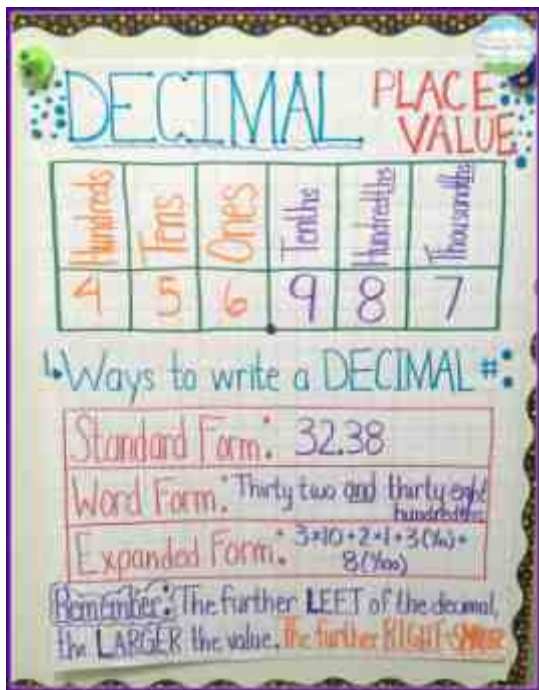 DECIMAL PLACE VALUE
Hundreds Tens Ones Tenths Hundredths Thousandths
4 5 6 . 9 8 7
Ways to write a DECIMAL #:
Standard Form: 32.38
Word Form: Thirty two and thirty eight
hundredths
Expanded Form: 3×10+2×1+3(1/10)+
8(1/100)
Remember: The further LEFT of the decimal,
the LARGER the value. The further RIGHT-SMALLER